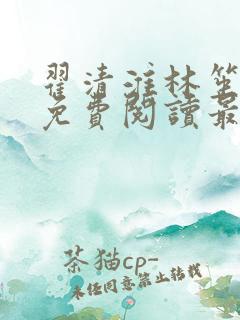 翟清淮林笙
免費閱讀最
茶猫cp-
未经同意禁止转载